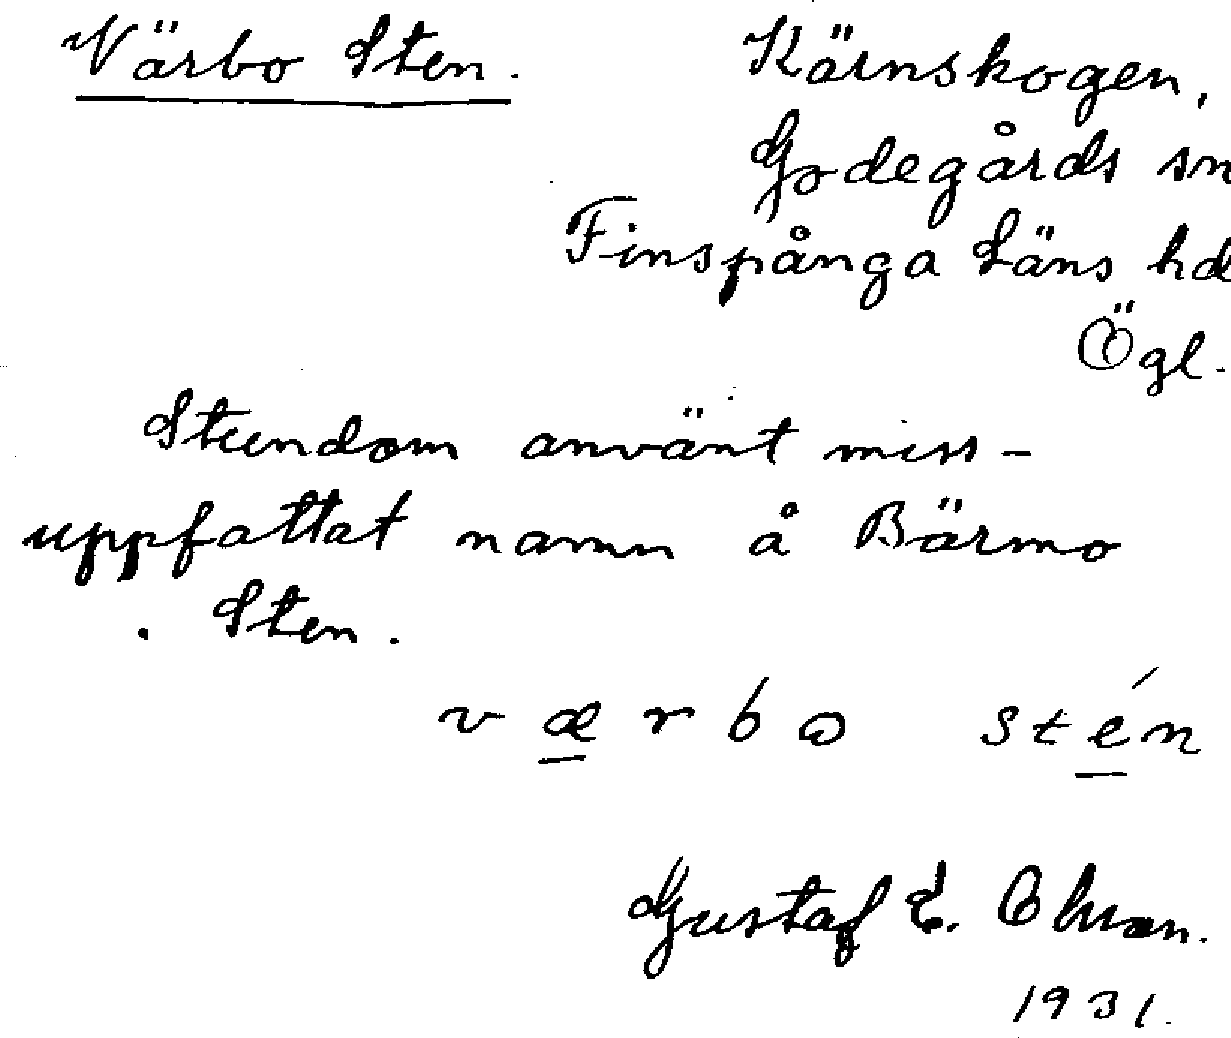 Värbo Sten. Kärnskogen,
Godegårds sn
Finspånga Läns hd
Ögl.
Stundom använt miss-
uppfattat namn å Bärmo
Sten.
værbo stén
Gustaf E.
1931.